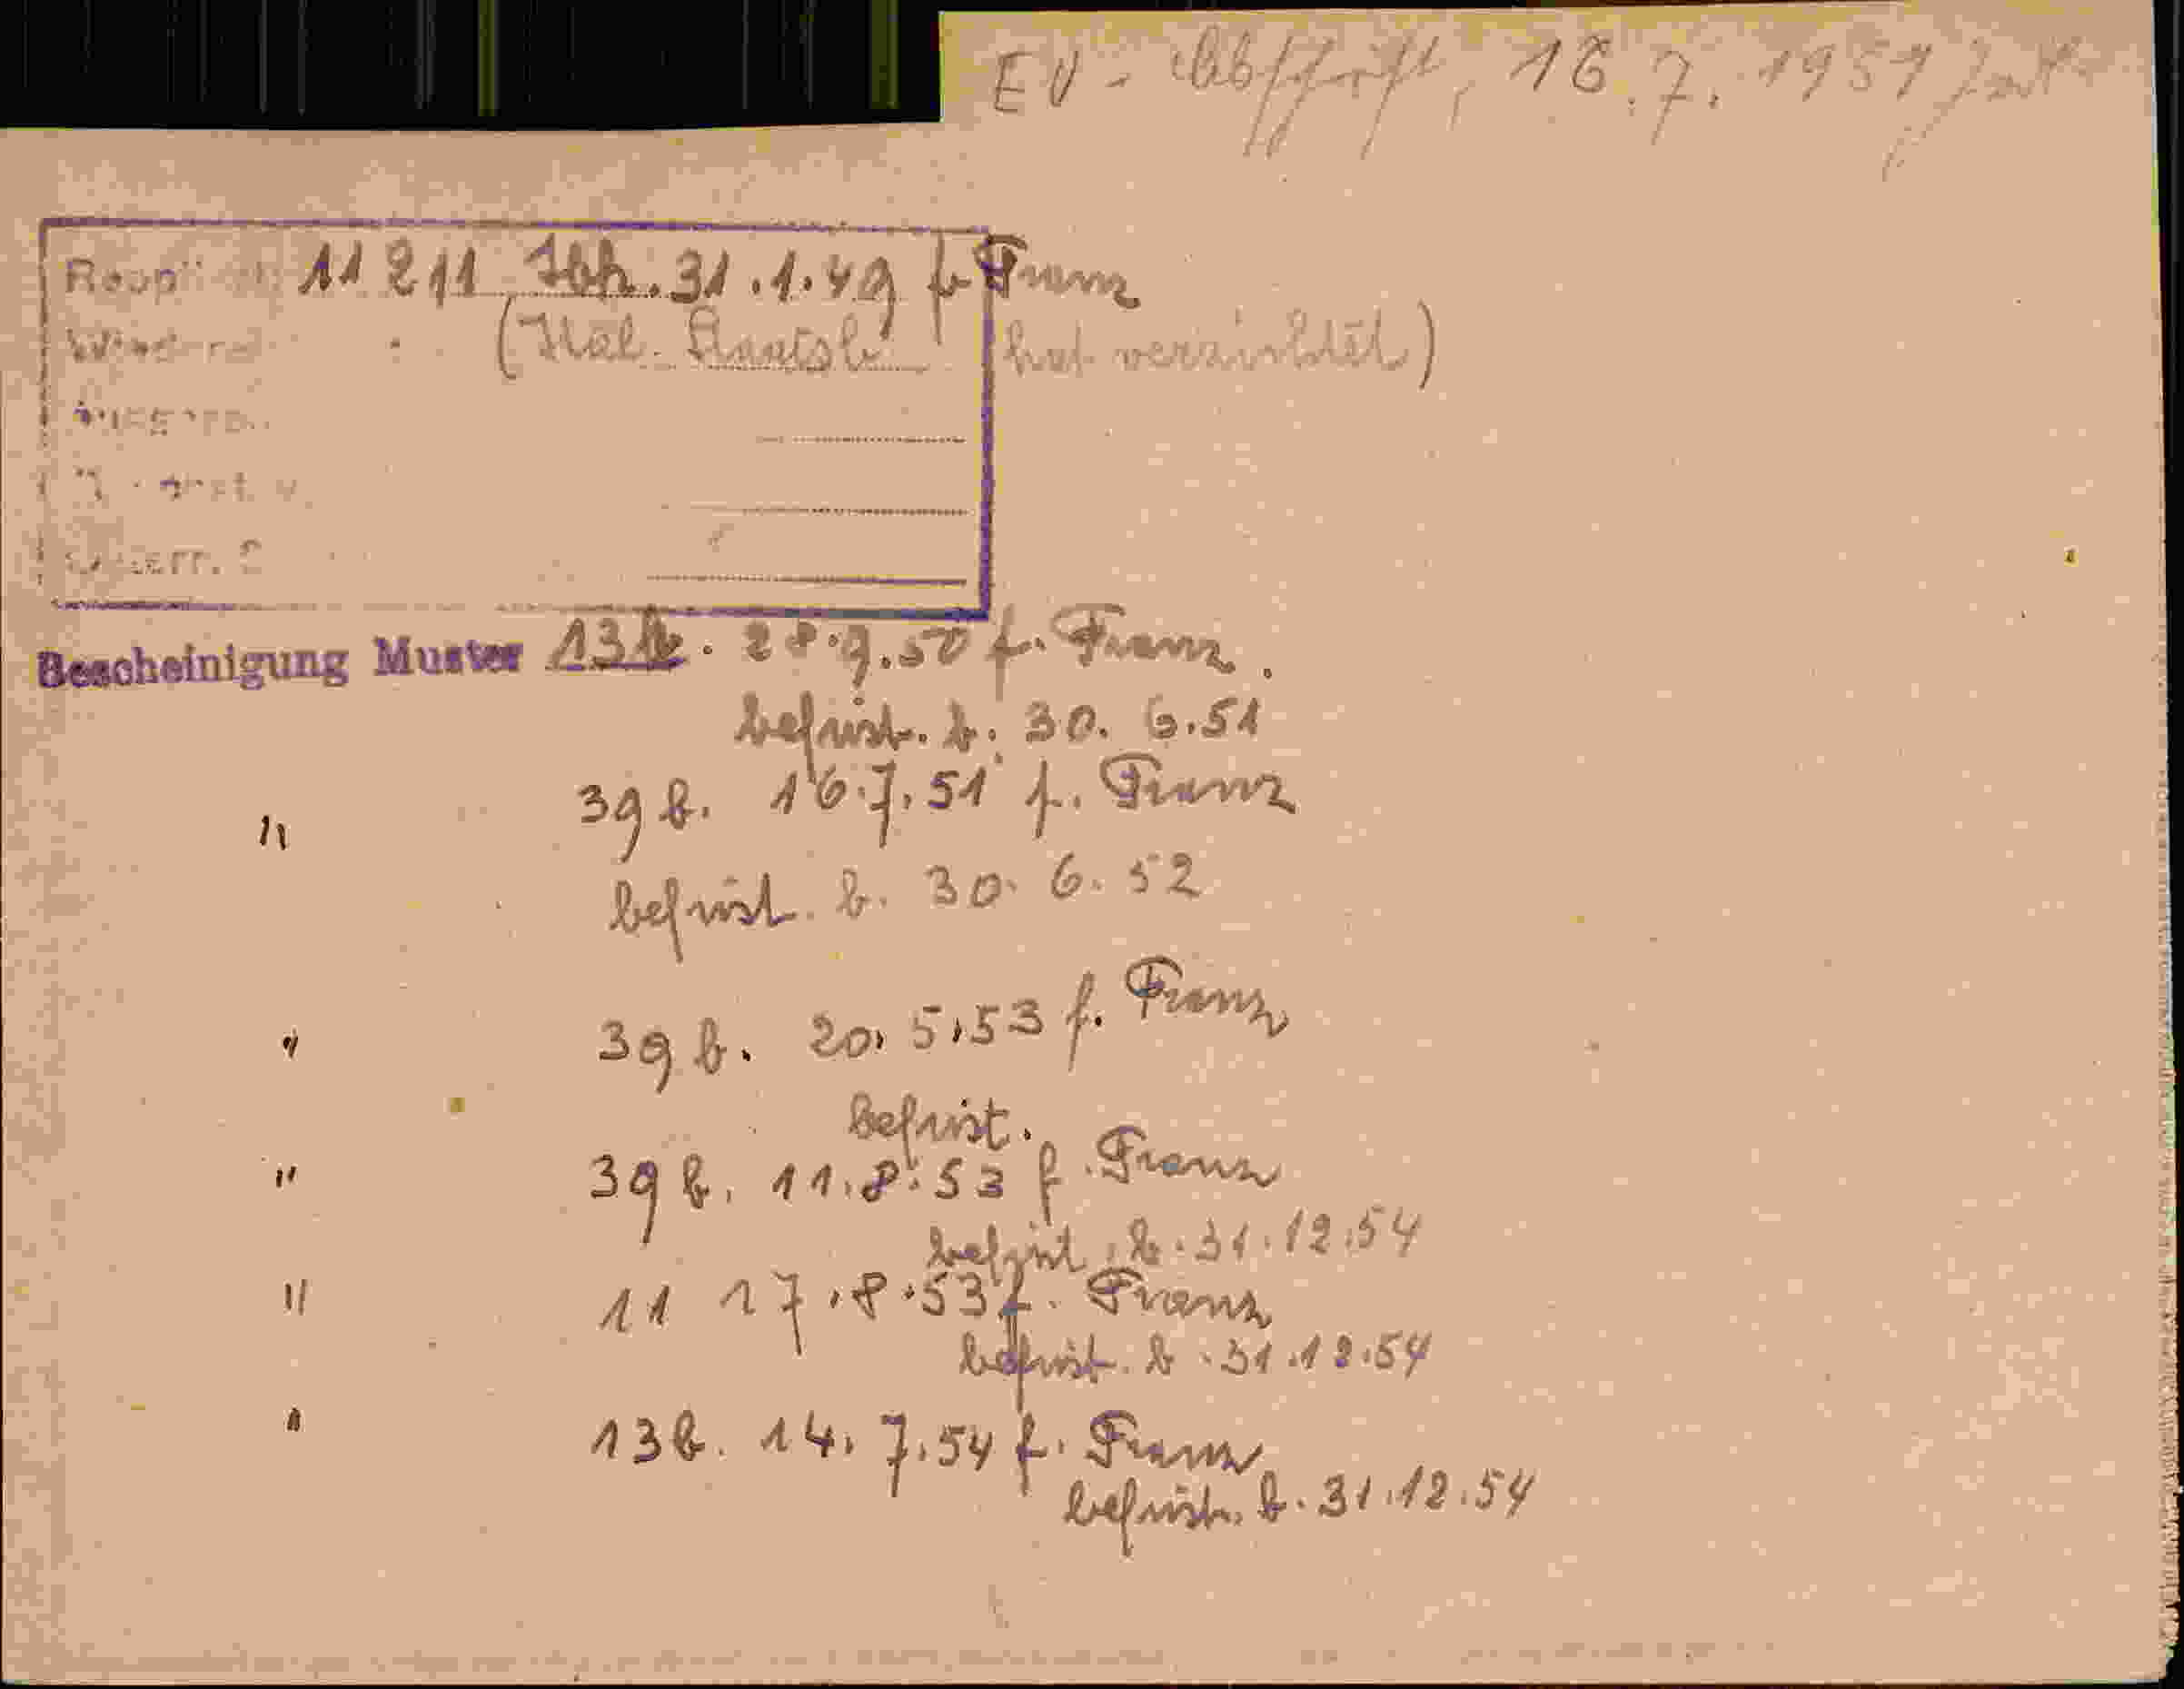 EV - Abschrift, 16.7.1957
11 211 Ibk. 31.1.49 f. Franz
(Ital. Staatsb. hat verzichtet)
Bescheinigung Muster 13b. 28.9.50 f. Franz.
befrist. b. 30. 6.51
" 39 b. 16.7.51 f. Franz
befrist. b. 30. 6. 52
" 39 b. 20. 5.53 f. Franz
befrist.
" 39 b. 11.8.53 f. Franz
befrist. b. 31.12.54
" 11 17.8.53 f. Franz
befrist. b. 31.12.54
" 13b. 14. 7.54 f. Franz
befrist. b. 31.12.54